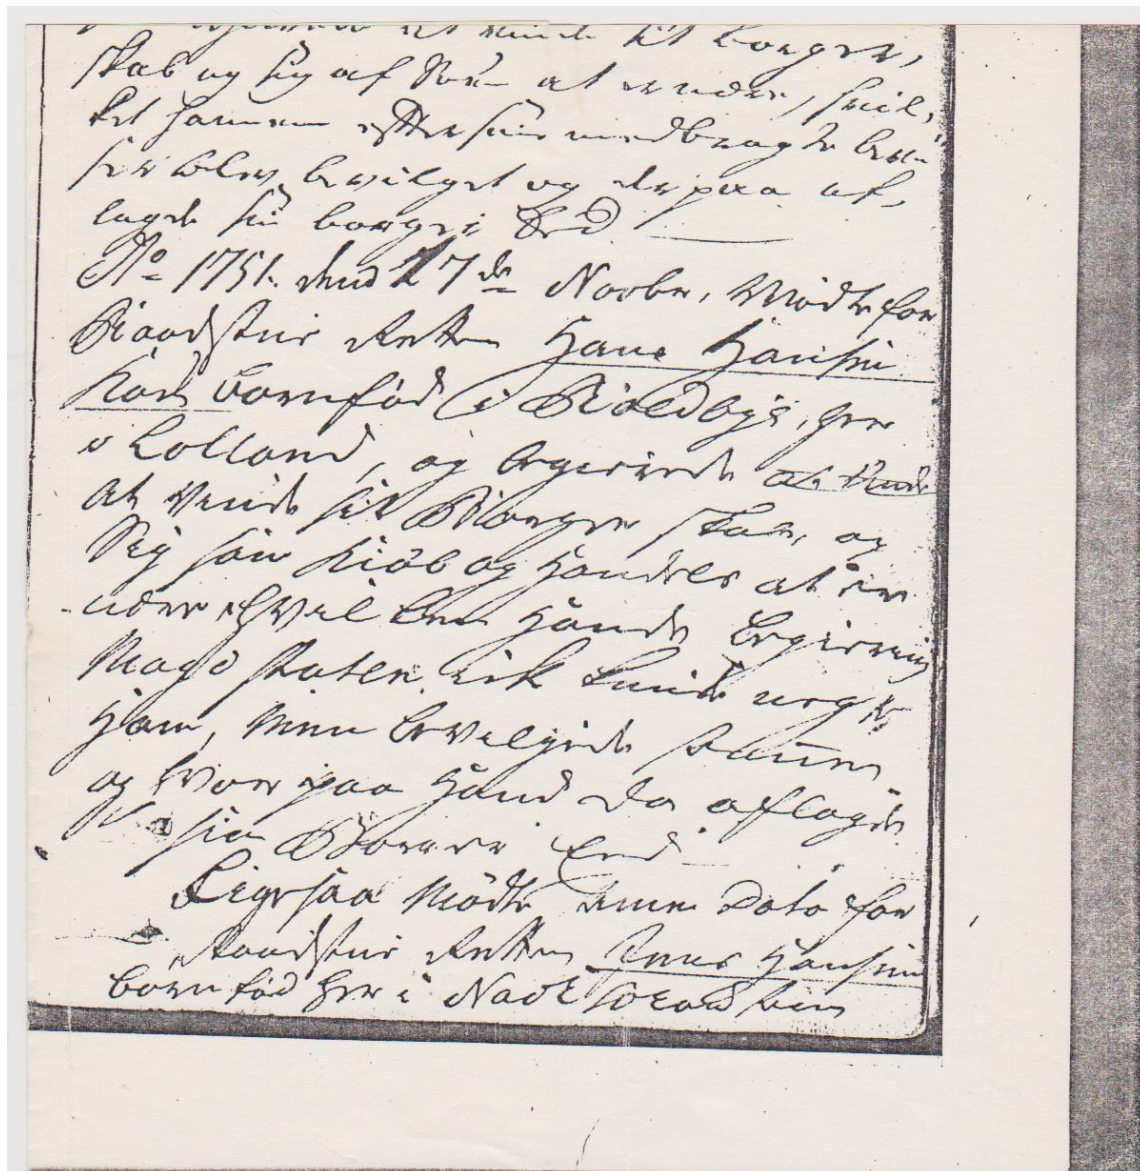 at vinde sit borger,
skab og sig af Søen at ernære, hvil,
ket hannem efter sine medbragte bevi
ser blev bevilget og derpaa af,
lagde sin borger Eed
Aõ 1751. dend 17de Novbr, Mødte for
Raadstue Retten Hans Hansen
Kok barnfød i Rødbÿe, her
i Lolland, og begierede
at vinde sit Borger skab, og
Sig som Kiøb og Handels at er
nære hvilken Hands begiering
Magistraten eik kunde negte
Ham, Men bevilgede samme
og hvor paa Hand da aflagde
sin Borger Eed
Ligesaa Mødte samme Dato for
Raadstue Retten Jens Hansen
barnfød her i Nackschou